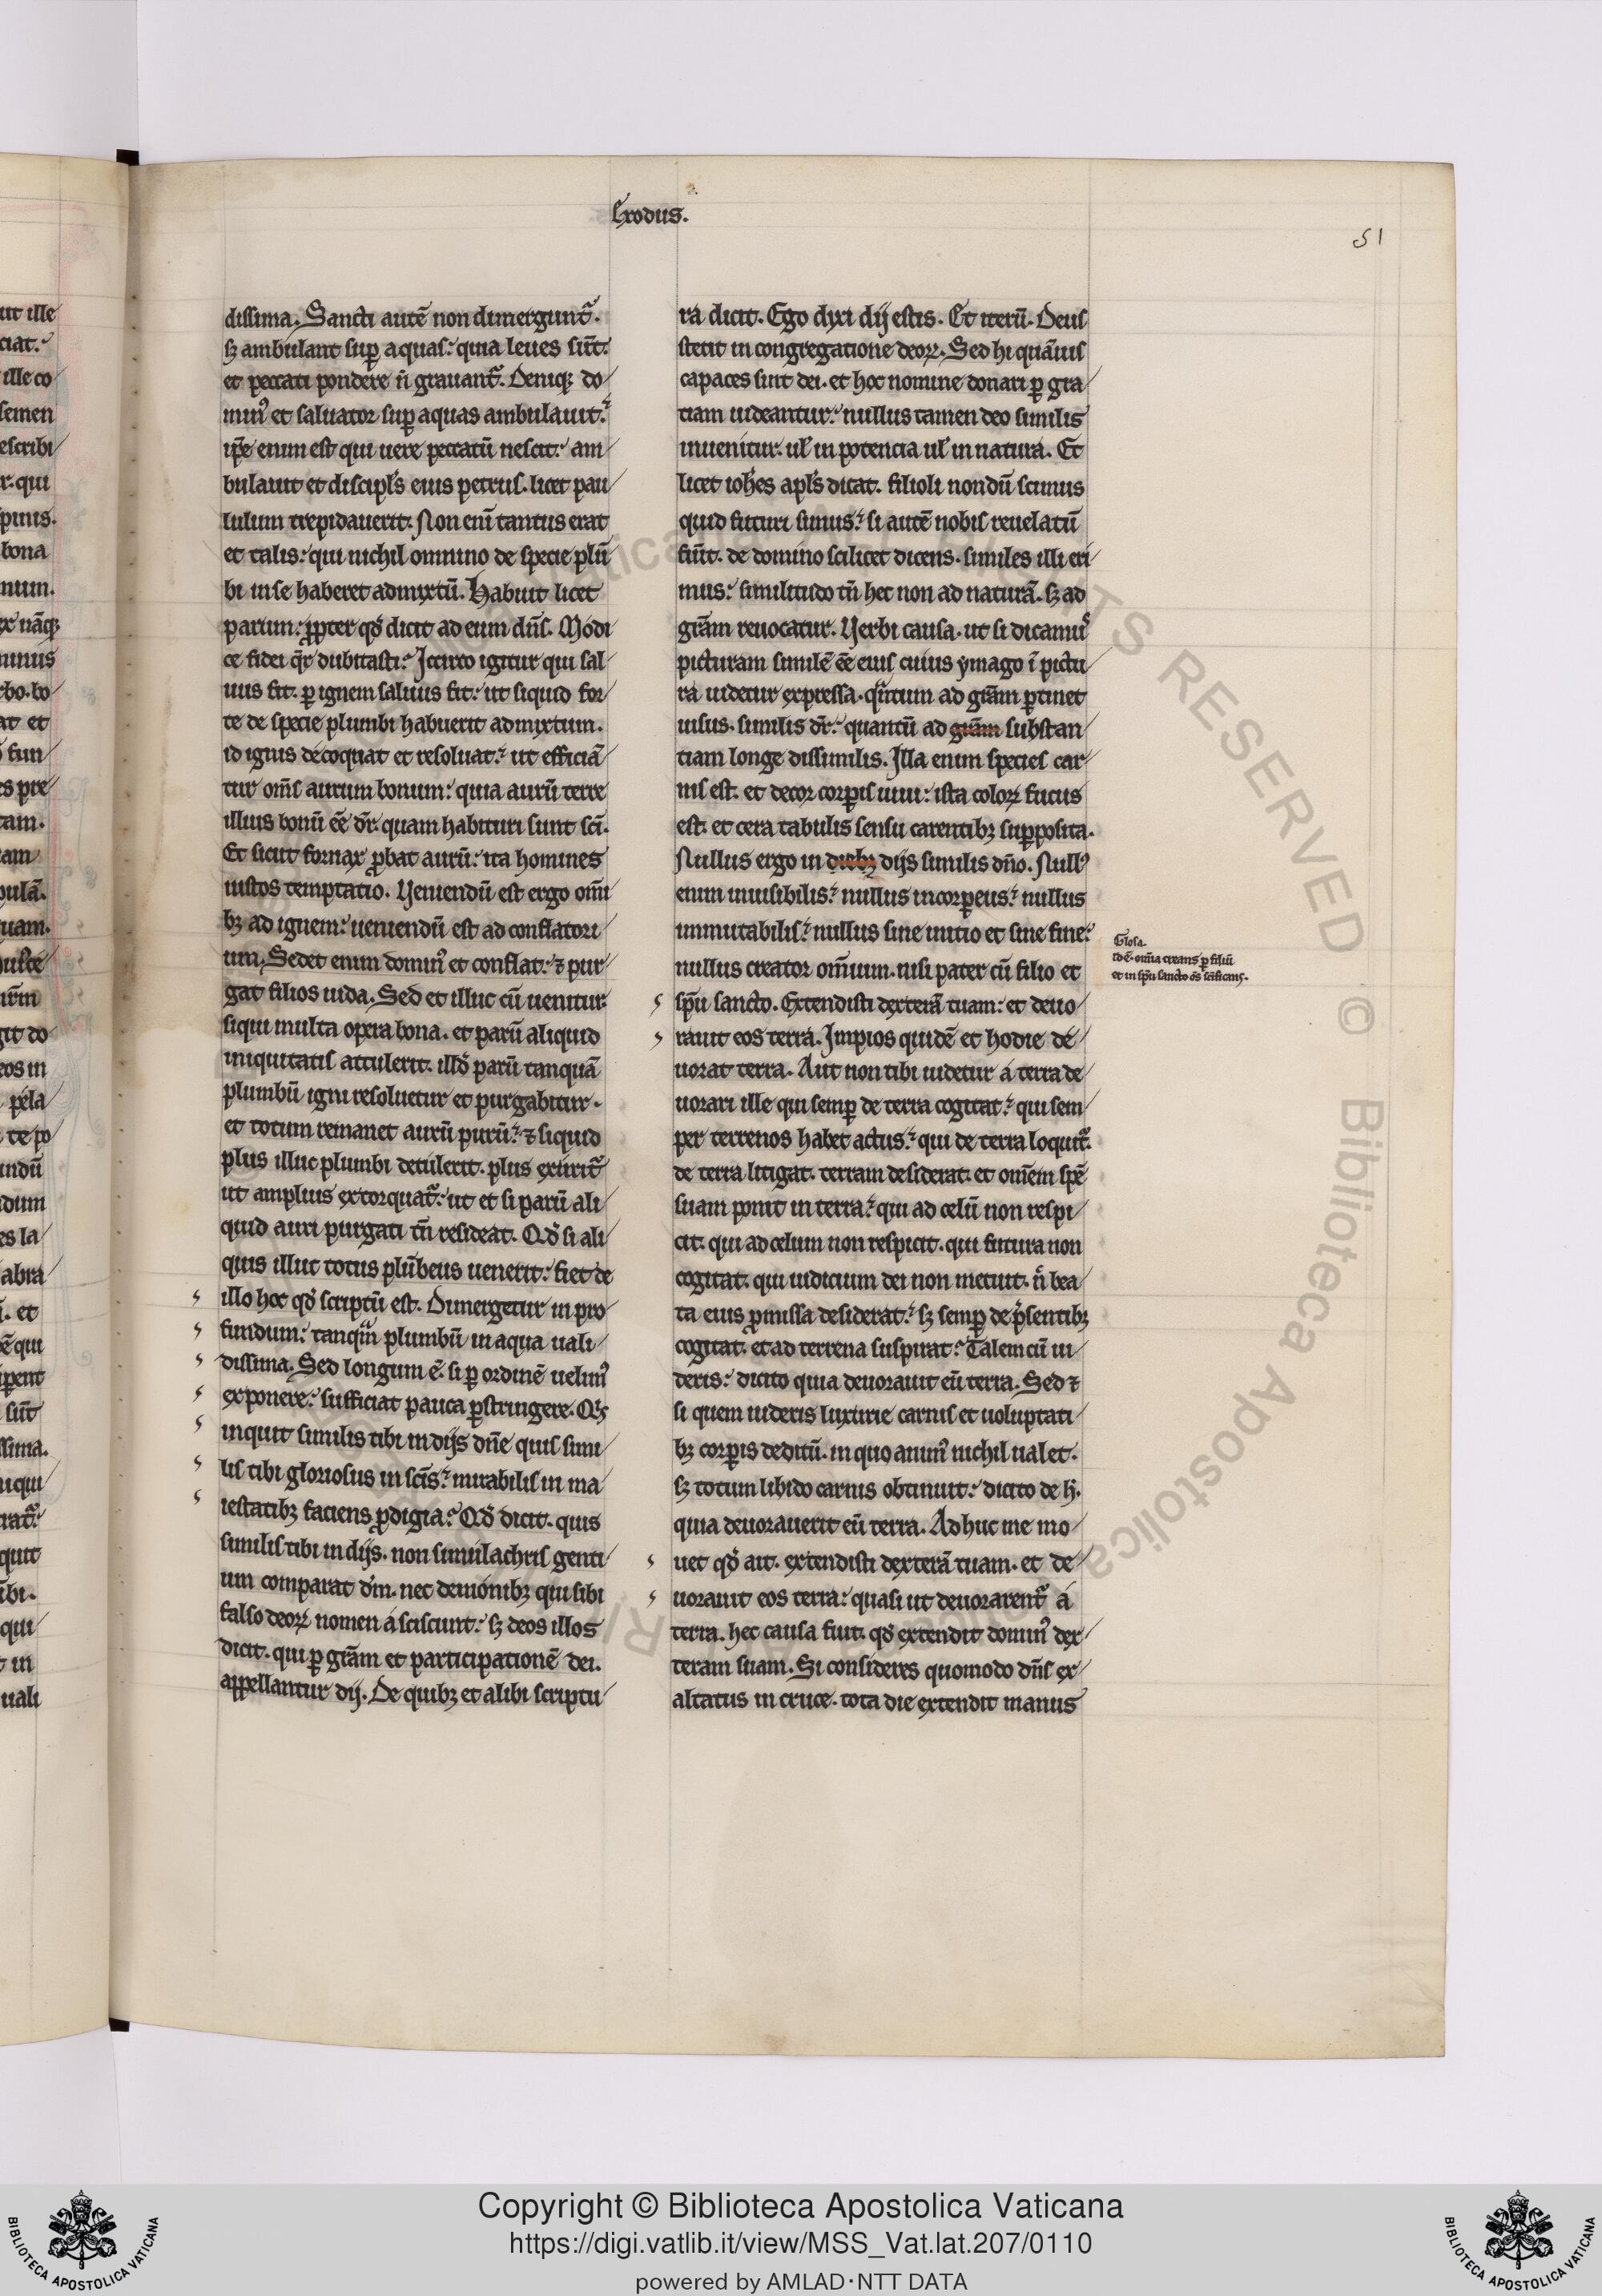 Exodus.
51
dissima. Sancti autē non dimergunt᷑.
sꝫ ambulant sup̱ aquas: quia leues sūt.
et peccati pondere n̄ grauant᷑. Deniqꝫ do/
minꝰ et saluator sup̱ aquas ambulauit:
ip̄e enim est qui uere peccatū nescit: am/
bulauit et discipl̄s eius petrus. licet pau/
lulum trepidauerit. Non enī tantus erat
et talis: qui nichil omnino de specie plū/
bi in se haberet admyxtū. Habuit licet
parum: ꝓpter qd̄ dicit ad eum dn̄s. Modi/
ce fidei q̄r dubitasti: Iccirco igitur qui sal/
uus fit. ꝑ ignem saluus fit: ut siquid for/
te de specie plumbi habuerit admixtum.
id ignis decoquat et resoluat: ut efficiā/
tur om̄s aurum bonum: quia aurū terre
illius bonū eē dr̄. quam habituri sunt sc̄i.
Et sicut fornax ꝓbat aurū: ita homines
iustos temptatio. Ueniendū est ergo om̄i/
bꝫ ad ignem: ueniendū est ad conflatori/
um. Sedet enim dominꝰ et conflat: ⁊ pur/
gat filios iuda. Sed et illuc cū uenitur.
siqui multa opera bona. et parū aliquid
iniquitatis attulerit. illd̄ parū tanquā
plumbū igni resoluetur et purgabitur.
et totum remanet aurū purū: ⁊ siquid
plus illuc plumbi detulerit. plus exurit᷑
ut amplius extorquat᷑: ut et si parū ali/
quid auri purgati tn̄ resideat. Qd̄ si ali/
quis illuc totus plūbeus uenerit: fiet de
illo hoc qd̄ scriptū est. Dimergetur in pro/
fundum: tanqᷓm plumbū in aqua uali/
dissima. Sed longum ē. si ꝑ ordinē uelimꝰ
exponere: sufficiat pauca ꝑstringere. Qis
inquit similis tibi in dijs dn̄e quis simi/
lis tibi gloriosus in sc̄is: mirabilis in ma/
iestatibꝫ faciens ꝓdigia: Qd̄ dicit. quis
similis tibi in dijs. non simulachris genti/
um comparat dm̄. nec demonibꝫ qui sibi
falso deoꝝ nomen ásciscunt: sꝫ deos illos
dicit. qui ꝑ grām et participationē dei.
appellantur dij. De quibꝫ et alibi scriptu/
ra dicit. Ego dixi dij estis. Et iterū. Deus
stetit in congregatione deoꝝ. Sed hi quāuis
capaces sint dei. et hoc nomine donari ꝑ gra/
tiam uideantur: nullus tamen deo similis
inuenitur. ul̄ in potencia ul̄ in natura. Et
licet ioh̄es apl̄s dicat. filioli nondū scimus
quid futuri simus: si autē nobis reuelatū
fūt. de domino scilicet dicens. similes illi eri/
mus: similitudo tn̄ hec non ad naturā. sꝫ ad
grām reuocatur. Uerbi causa. ut si dicamꝰ
picturam similē eē eius cuius ymago ī pictu/
ra uidetur expressa. qᷓntum ad grām ꝑtinet
uisus. similis dr̄: quantū ad grām substan/
tiam longe dissimilis. Illa enim species car/
nis est. et decor corꝑis uiui: ista coloꝝ fucus
est. et cera tabulis sensu carentibꝫ supꝑposita.
Nullus ergo in diebꝫ dijs similis dn̄o. Nullꝰ
enim inuisibilis: nullus incorꝑeus: nullus
immutabilis: nullus sine initio et sine fine:
nullus creator om̄ium. nisi pater cū filio et
sp̄u sancto. Extendisti dexterā tuam: et deuo/
rauit eos terra. Impios quidē et hodie de/
uorat terra. Aut non tibi uidetur á terra de/
uorari ille qui semꝑ de terra cogitat: qui sem/
per terrenos habet actus: qui de terra loquit᷑.
de terra litigat. terram desiderat. et om̄em spē
suam ponit in terra: qui ad celū non respi/
cit. qui ad celum non respicit. qui futura non
cogitat. qui iudicium dei non metuit. n̄ bea/
ta eius ꝓmissa desiderat: sꝫ semꝑ de p̄sentibꝫ
cogitat. et ad terrena suspirat: Talem cū ui/
deris: dicito quia deuorauit eū terra. Sed ⁊
si quem uideris luxurie carnis et uoluptati/
bꝫ corꝑis deditū. in quo animꝰ nichil ualet.
sꝫ totum libido carnis obtinuit: dicito de h̄.
quia deuorauerit eū terra. Adhuc me mo/
uet qd̄ ait. extendisti dexterā tuam. et de/
uorauit eos terra: quasi ut deuorarent᷑ á
terra. hec causa fuit. qd̄ extendit dominꝰ dex/
teram suam. Si consideres quomodo dn̄s ex/
altatus in cruce. tota die extendit manus
Glosa.
id ē. om̄ia creans ꝑ filiū
et in sp̄u sancto om̄s sc̄ificans.
Copyright © Biblioteca Apostolica Vaticana
https://digi.vatlib.it/view/MSS_Vat.lat.207/0110
powered by AMLAD·NTT DATA